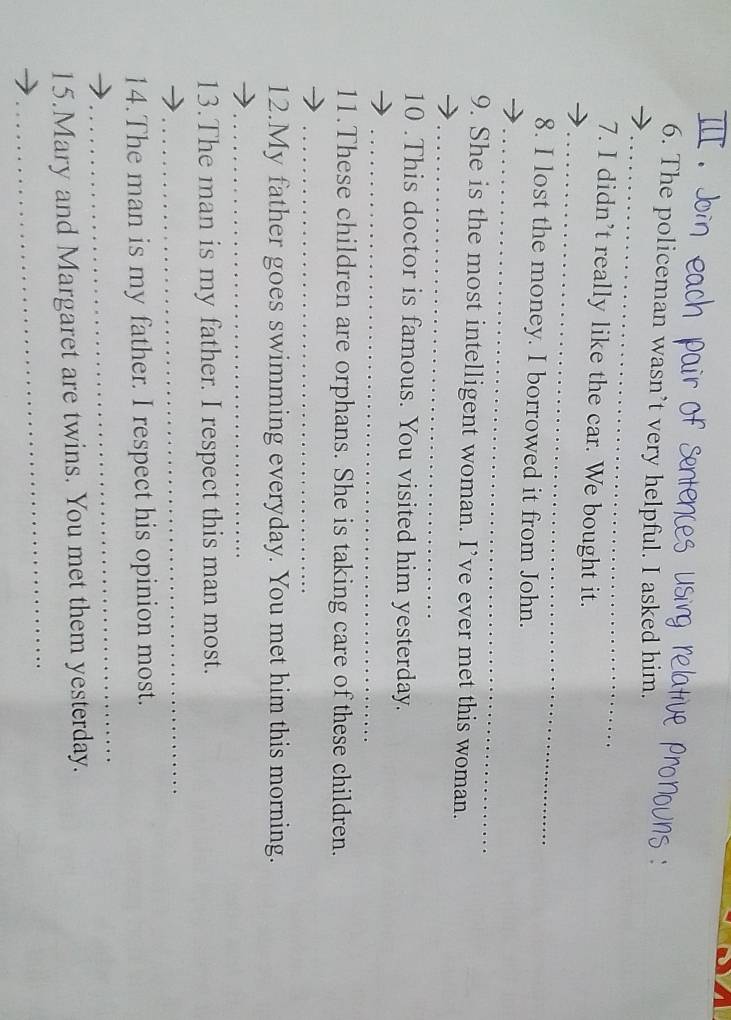 III. Join each pair of sentences using relative pronouns:
6. The policeman wasn't very helpful. I asked him.
→ ........................................
7. I didn't really like the car. We bought it.
→ ........................................
8. I lost the money. I borrowed it from John.
→ ........................................
9. She is the most intelligent woman. I've ever met this woman.
→ ........................................
10 .This doctor is famous. You visited him yesterday.
→ ........................................
11.These children are orphans. She is taking care of these children.
→ ........................................
12.My father goes swimming everyday. You met him this morning.
→ ........................................
13.The man is my father. I respect this man most.
→ ........................................
14.The man is my father. I respect his opinion most.
→ ........................................
15.Mary and Margaret are twins. You met them yesterday.
→ ........................................